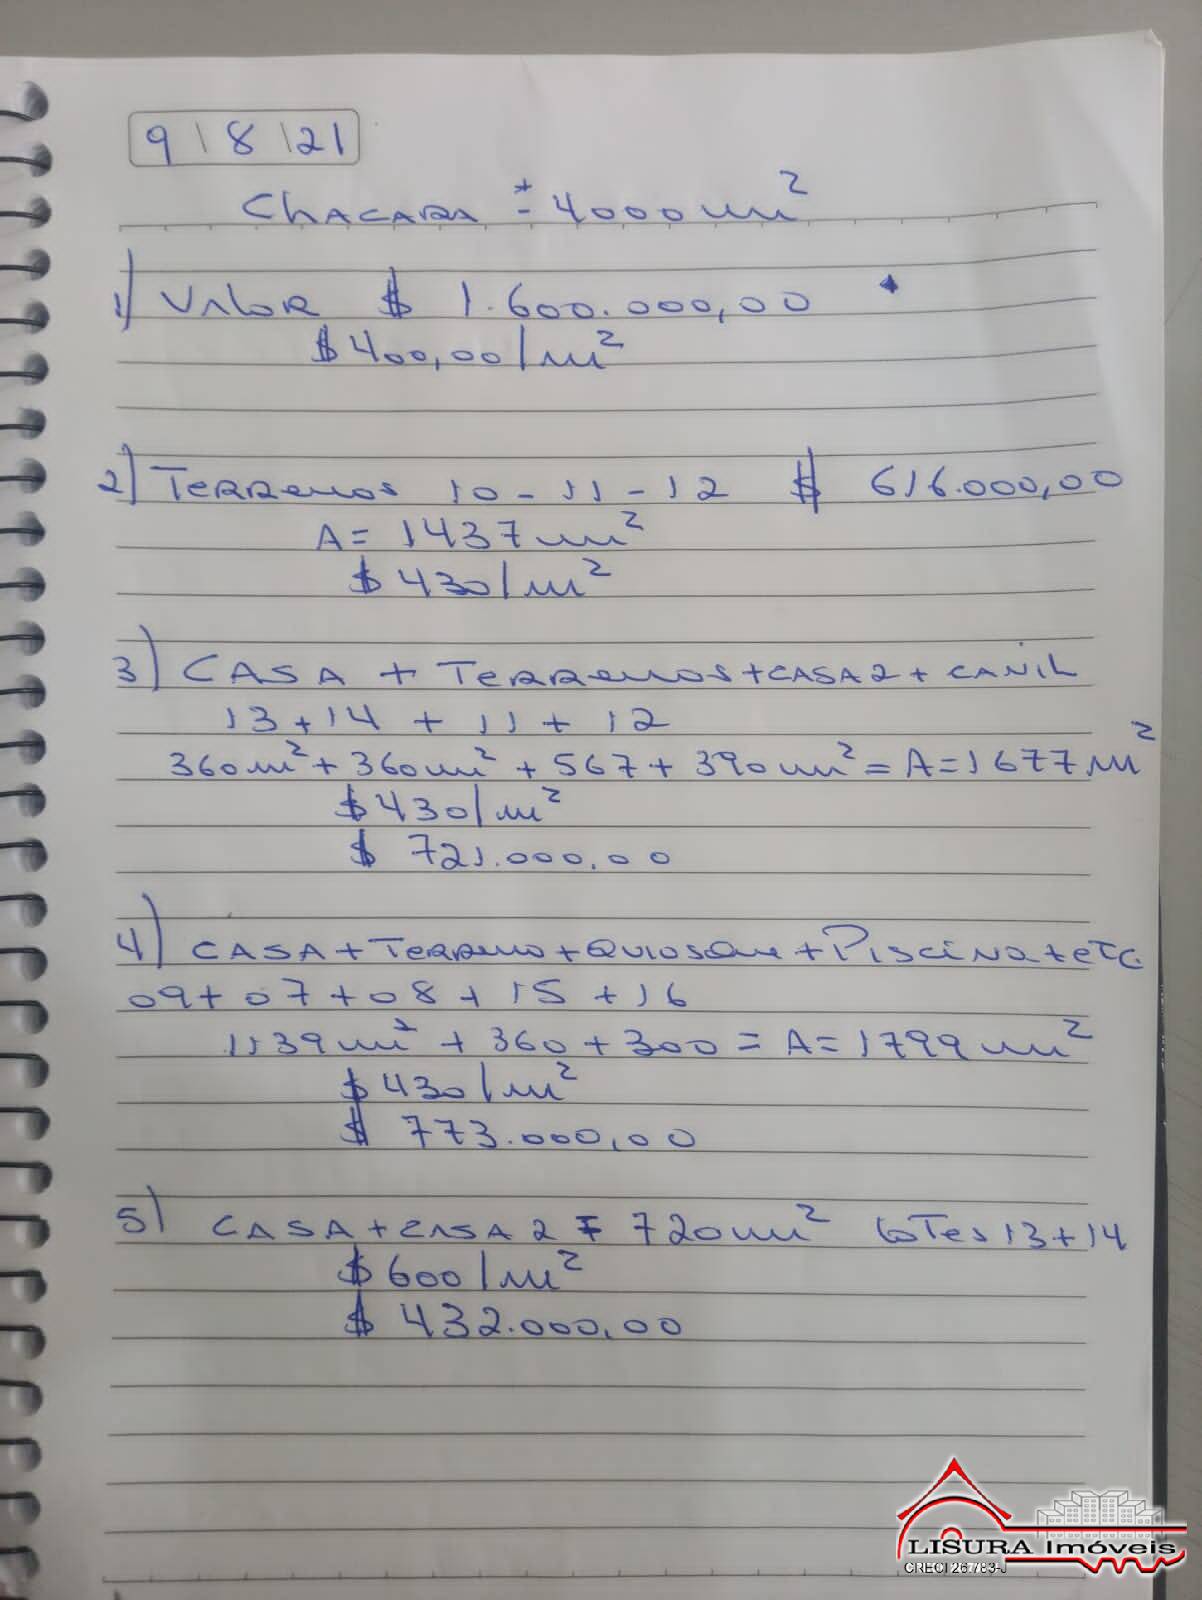 9 \ 8 \ 21
CHACARA ± 4000 m²
1) VALOR $ 1.600.000,00
$400,00/m²
2) TERRENOS 10-11-12 $ 616.000,00
A= 1437 m²
$ 430/m²
3) CASA + TERRENOS + CASA 2 + CANIL
13+14 + 11 + 12
360m² + 360m² + 567 + 390m² = A=1677m²
$ 430/m²
$ 721.000,00
4) CASA + TERRENO + QUIOSQUE + PISCINA + ETC
09+07+08+15+16
1139m² + 360 + 300 = A= 1799 m²
$ 430/m²
$ 773.000,00
5) CASA + CASA 2 = 720m² LOTES 13+14
$ 600/m²
$ 432.000,00
LISURA Imóveis
CRECI 267/83-J